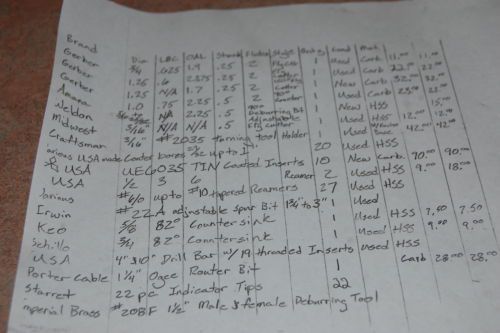 Brand Dia LOC OAL Shank Flutes Style Qnty. Cond Mat.
Gerber 3/4 .625 1.9 .25 2 Fly Cutter 1 Used Carb 11.00 11.00
Gerber 1.25 .6 2.875 .25 2 Cutter 1 Used Carb 22.00 22.00
Gerber 1.25 N/A 1.7 .25 2 Cutter 1 Used Carb 32.00 32.00
Amana 1.0 .75 2.25 .5 2 Router 1 Used Carb 23.00 23.00
Weldon N/A 2.25 .5 90° 1 New HSS
Midwest 3/16 N/A N/A .5 Adjustable Fly Cutter 1 Used HSS 12.00 12.00
Craftsman 3/16" #2035 Turning tool Holder 1 Used 42.00 42.00
Various USA made Loader bores 5/32 up to 1 20 Used HSS
USA UEG035 TIN Coated Inserts 10 New Carb. 90.00 90.00
USA 1/2 3 6 Reamer 2 Used HSS 9.00 18.00
Various #6/0 up to #10 tapered Reamers 27 Used HSS
Irwin #22A adjustable spur Bit 1 3/4 to 3" 1 Used
Keo 5/8 82° Countersink 1 Used HSS 7.50 7.50
Schillo 3/4 82° Countersink 1 Used HSS 9.00 9.00
USA 4" $10" Drill Bar w/19 threaded Inserts used HSS
Porter Cable 1 1/4" Ogee Router Bit 1 Carb 28.00 28.00
Starret 22 pc Indicator Tips 22
Imperial Brass #208F 1 1/2" Male & female Deburring Tool